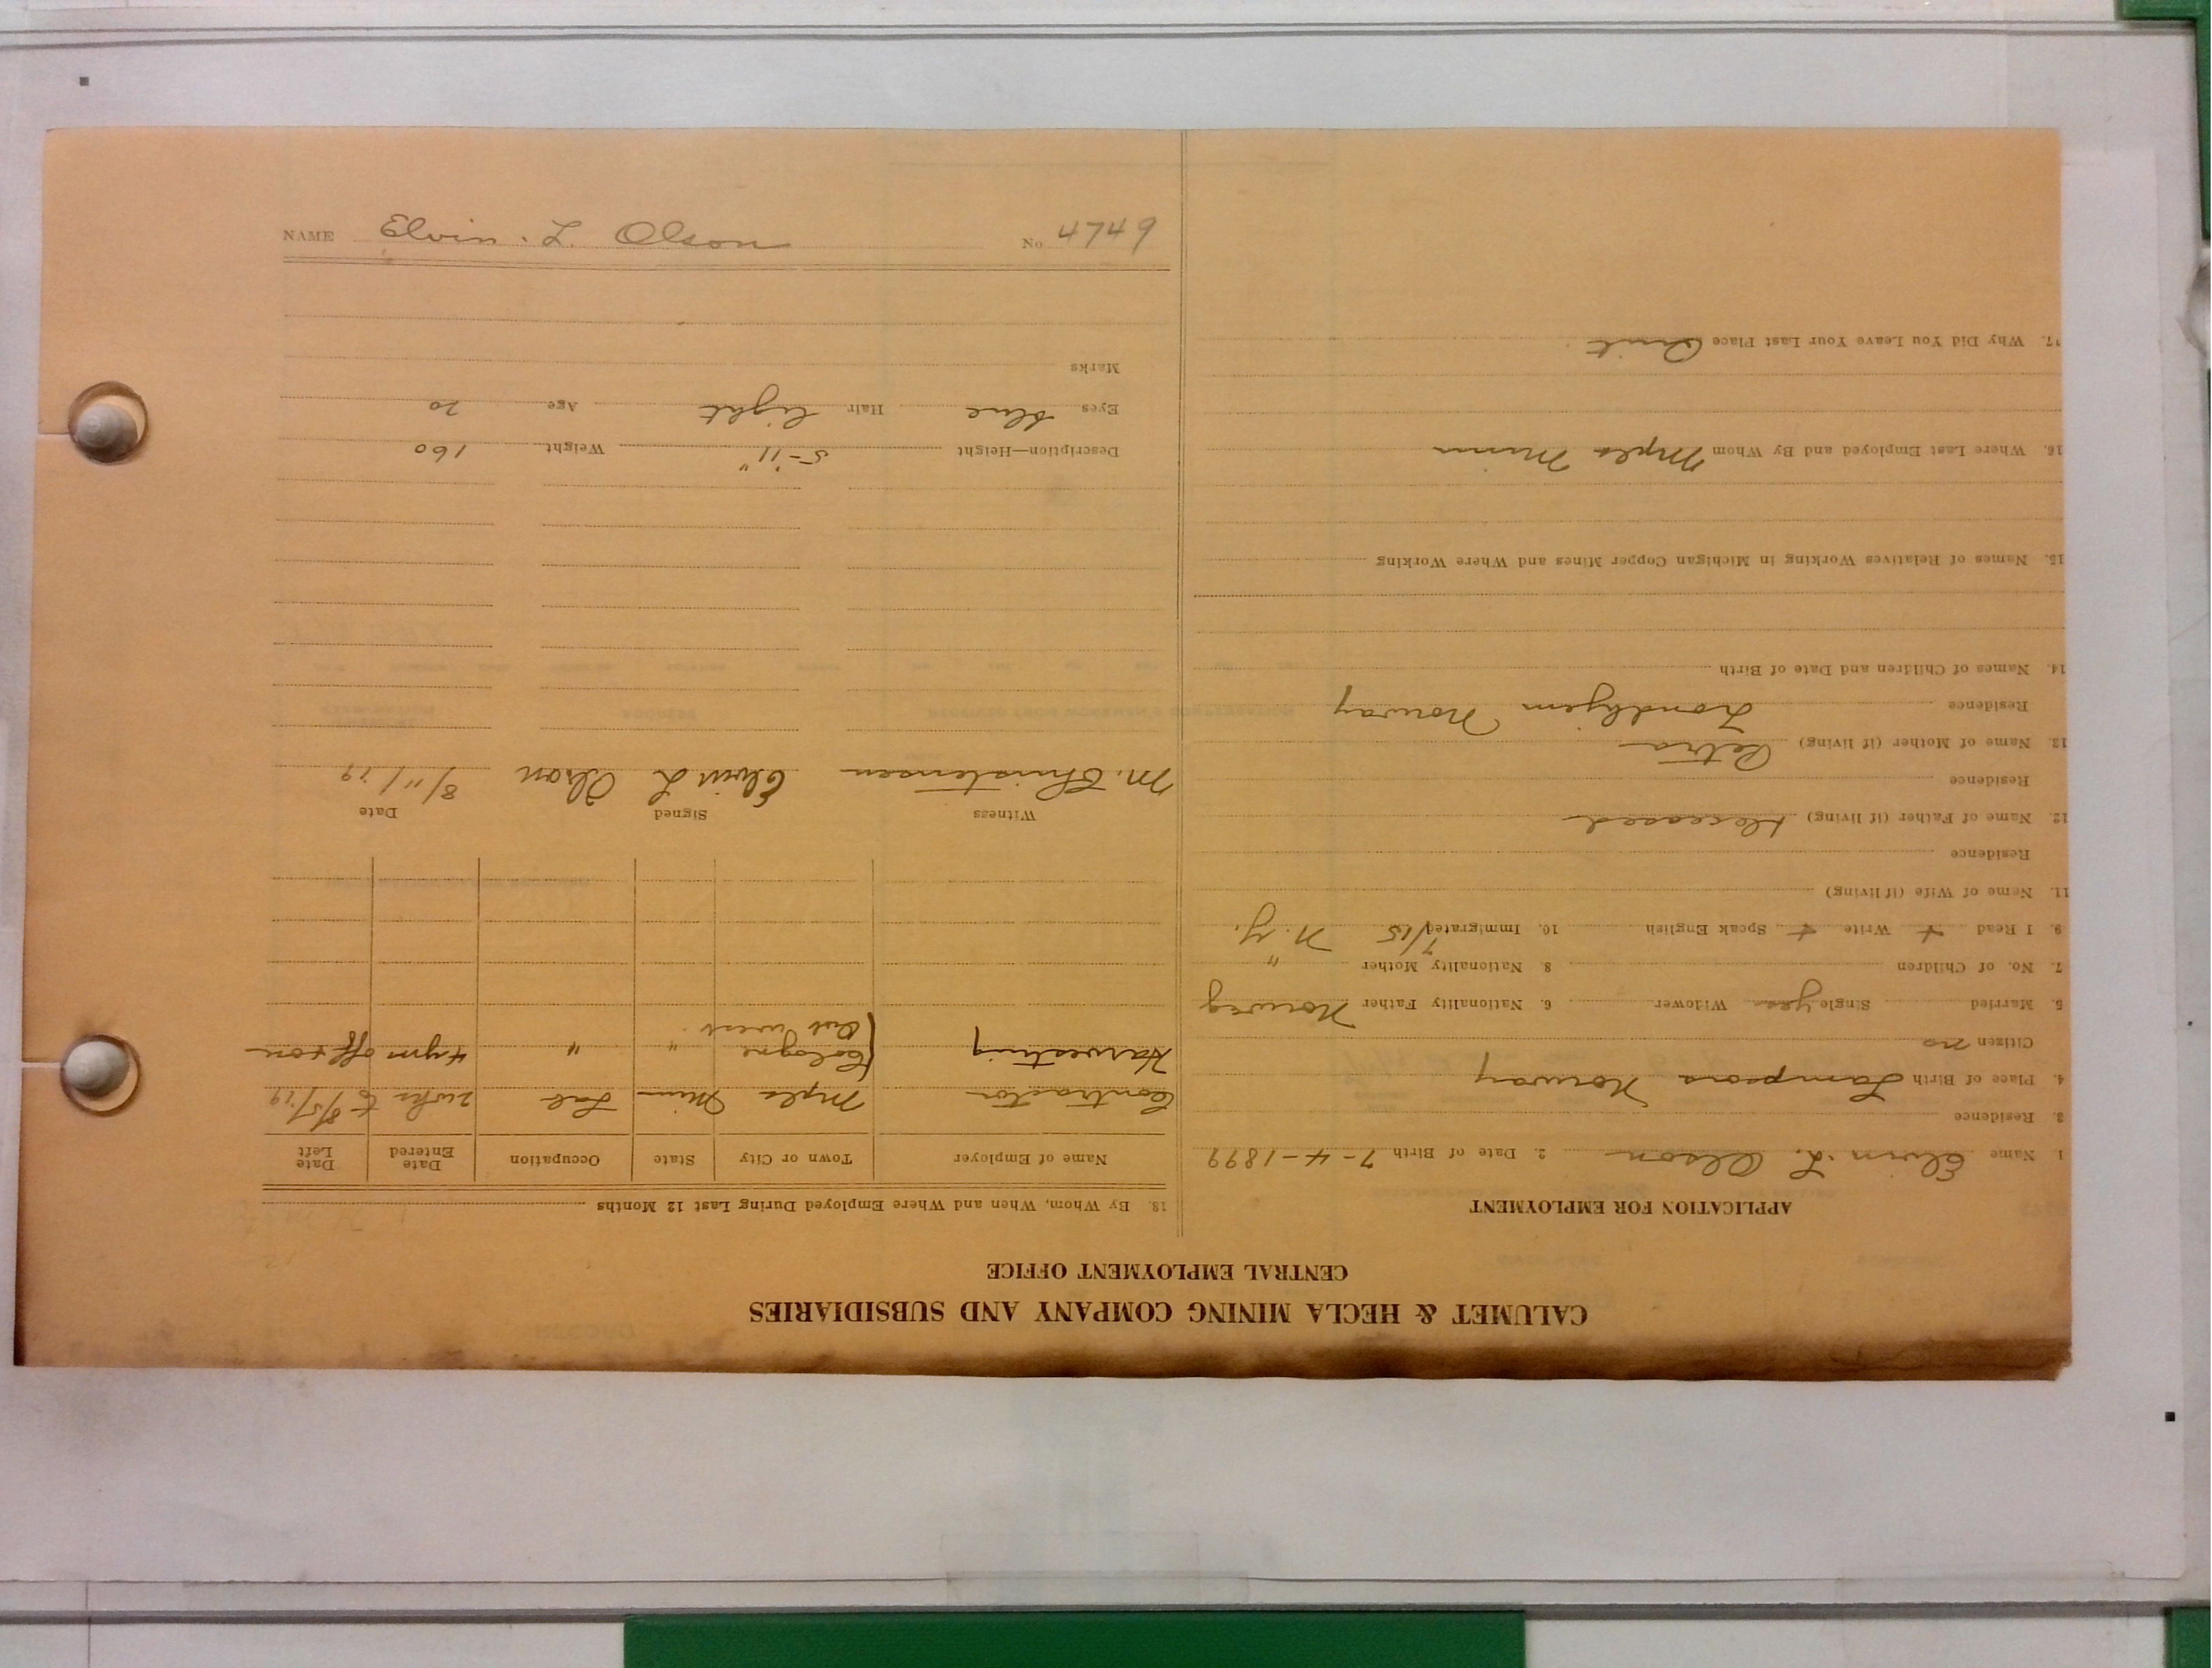 CALUMET & HECLA MINING COMPANY AND SUBSIDIARIES
CENTRAL EMPLOYMENT OFFICE
APPLICATION FOR EMPLOYMENT
1 Name Elvin L. Olson 2. Date of Birth 7-4-1899
3. Residence
4. Place of Birth Norway
Citizen no
5. Married Single yes Widower 6. Nationality Father Norway
7. No. of Children 8. Nationality Mother "
9. I Read + Write + Speak English 10. Immigrated 7/15 N.Y.
11. Name of Wife (if living)
Residence
12. Name of Father (if living) deceased
Residence
13. Name of Mother (if living) Petra
Residence Trondhjem Norway
14. Names of Children and Date of Birth
15. Names of Relatives Working in Michigan Copper Mines and Where Working
16. Where Last Employed and By Whom Myla Minn
17. Why Did You Leave Your Last Place Quit
18. By Whom, When and Where Employed During Last 12 Months
Name of Employer Town or City State Occupation Date Entered Date Left
Contractor Myla Minn Lab 2 wks to 8/5/19
Harvesting (Cologne " " off + on
(Out west
Witness Signed Date
M. Christensen Elvin L Olson 8/11/19
Description—Height 5-11" Weight 160
Eyes blue Hair light Age 20
Marks
NAME Elvin. L. Olson No 4749